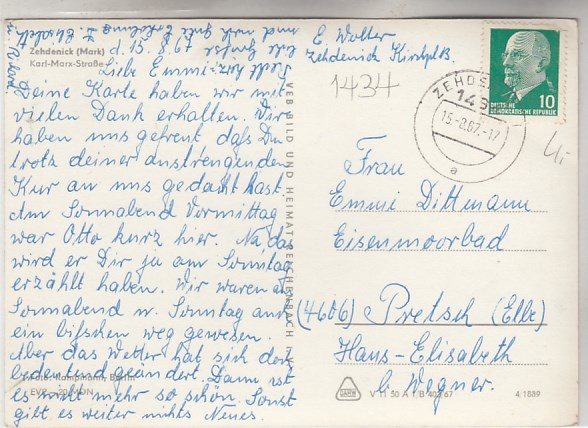 Zehdenick (Mark)
Karl-Marx-Straße
d. 15.8.67
Liebe Emmi!
Deine Karte haben wir mit
vielen Dank erhalten. Wir
haben uns gefreut, daß Du
trotz deiner anstrengenden
Kur an uns gedacht hast.
Am Sonnabend Vormittag
war Otto kurz hier. Na, das
wird er Dir ja am Sonntag
erzählt haben. Wir waren am
Sonnabend u. Sonntag auch
ein bißchen weg gewesen.
Aber das Wetter hat sich doch
bedeutend geändert. Dann ist
es nicht mehr so schön. Sonst
gibt es weiter nichts Neues.
und noch gute Erholung
E. Elisabeth
u. Roland
Foto: Kampmann, Berlin
EVP
VEB BILD UND HEIMAT REICHENBACH
E. Wolter
Zehdenick Kirchpl. 8.
1434
ZEHDENICK
15.-8.67.-17
a
DEUTSCHE
DEMOKRATISCHE REPUBLIK
10
Frau
Emmi Dittmann
Eisenmoorbad
(4606) Pretsch (Elbe)
Haus-Elisabeth
b. Wegner.
V 11 50 A 1/B 405/67
4/1889